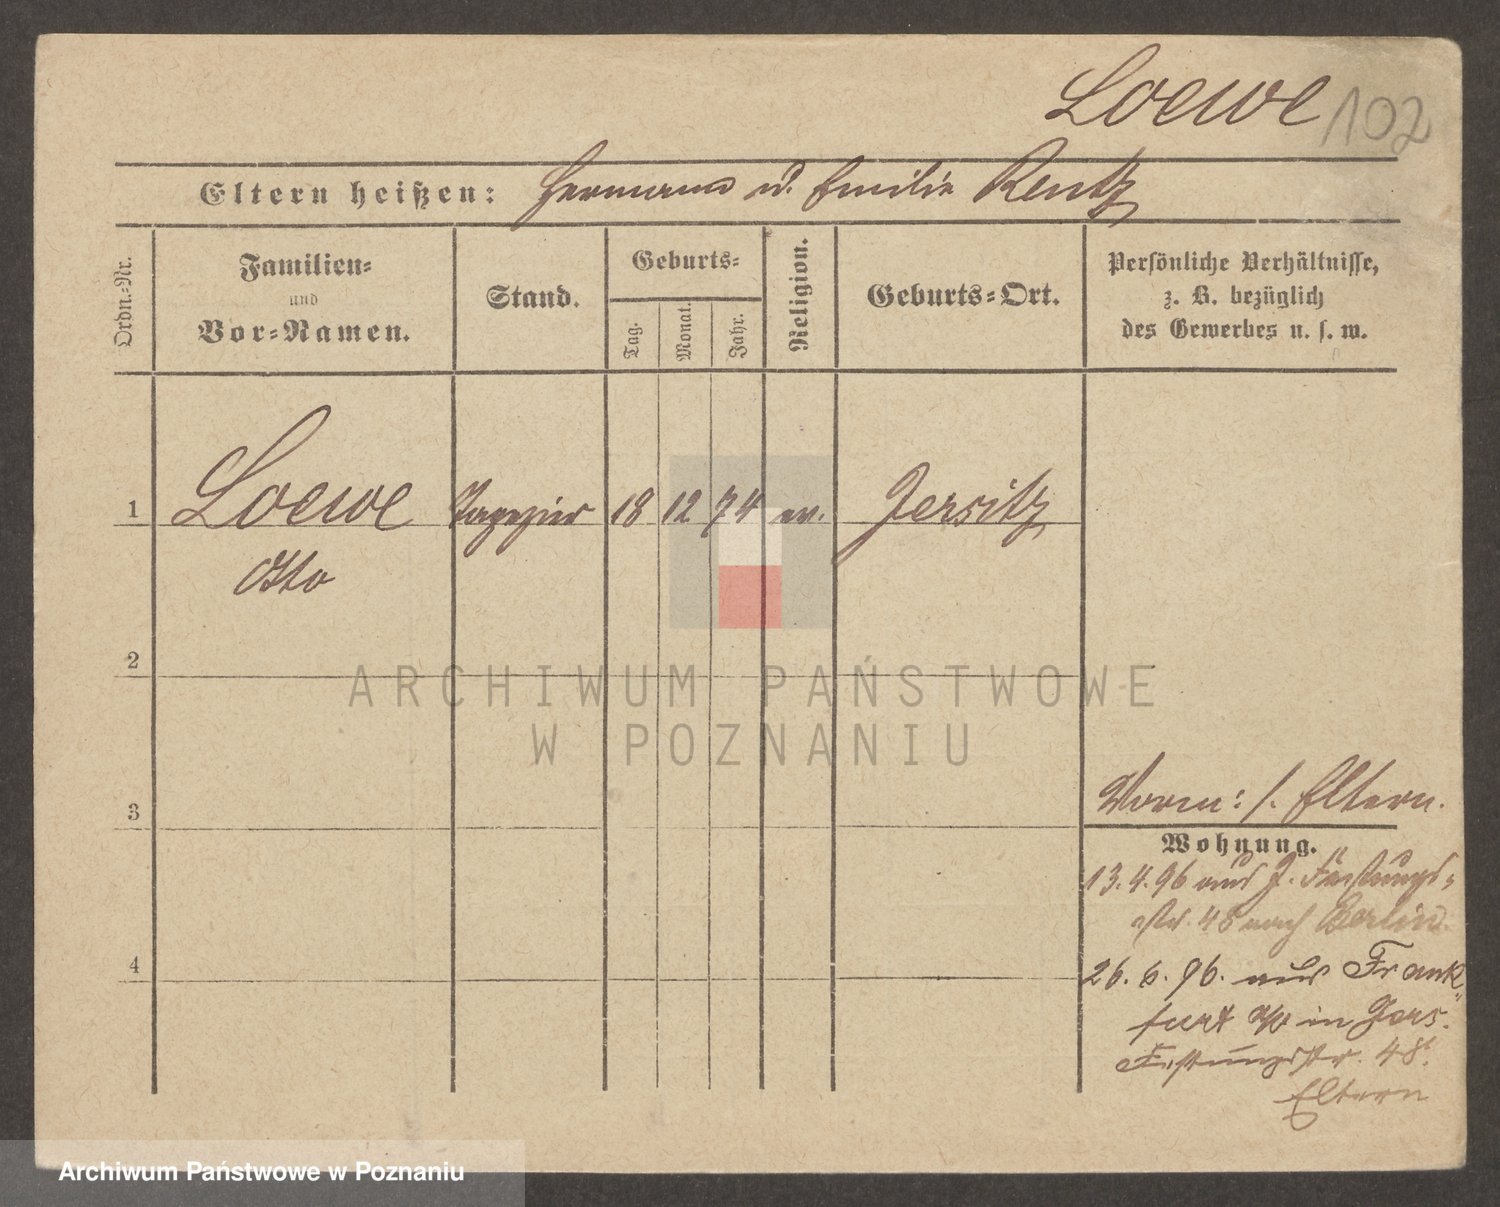 Loewe 102
Eltern heißen: Hermann u. Emilie Rentz
Ordn.-Nr.
Familien-
und
Vor-Namen.
Stand.
Geburts-
Tag.
Monat.
Jahr.
Religion.
Geburts-Ort.
Persönliche Verhältnisse,
z. B. bezüglich
des Gewerbes u. s. w.
1 Loewe Tapezier 18 12 74 ev. Jersitz
Otto
2
ARCHIWUM PAŃSTWOWE
W POZNANIU
3
Vorm: s. Eltern.
Wohnung.
13.4.96 aus J. Festungs-
str. 48 nach Berlin.
4
26.6.96. aus Frank-
furt a/O in Jers.
Festungsstr. 48
Eltern
Archiwum Państwowe w Poznaniu